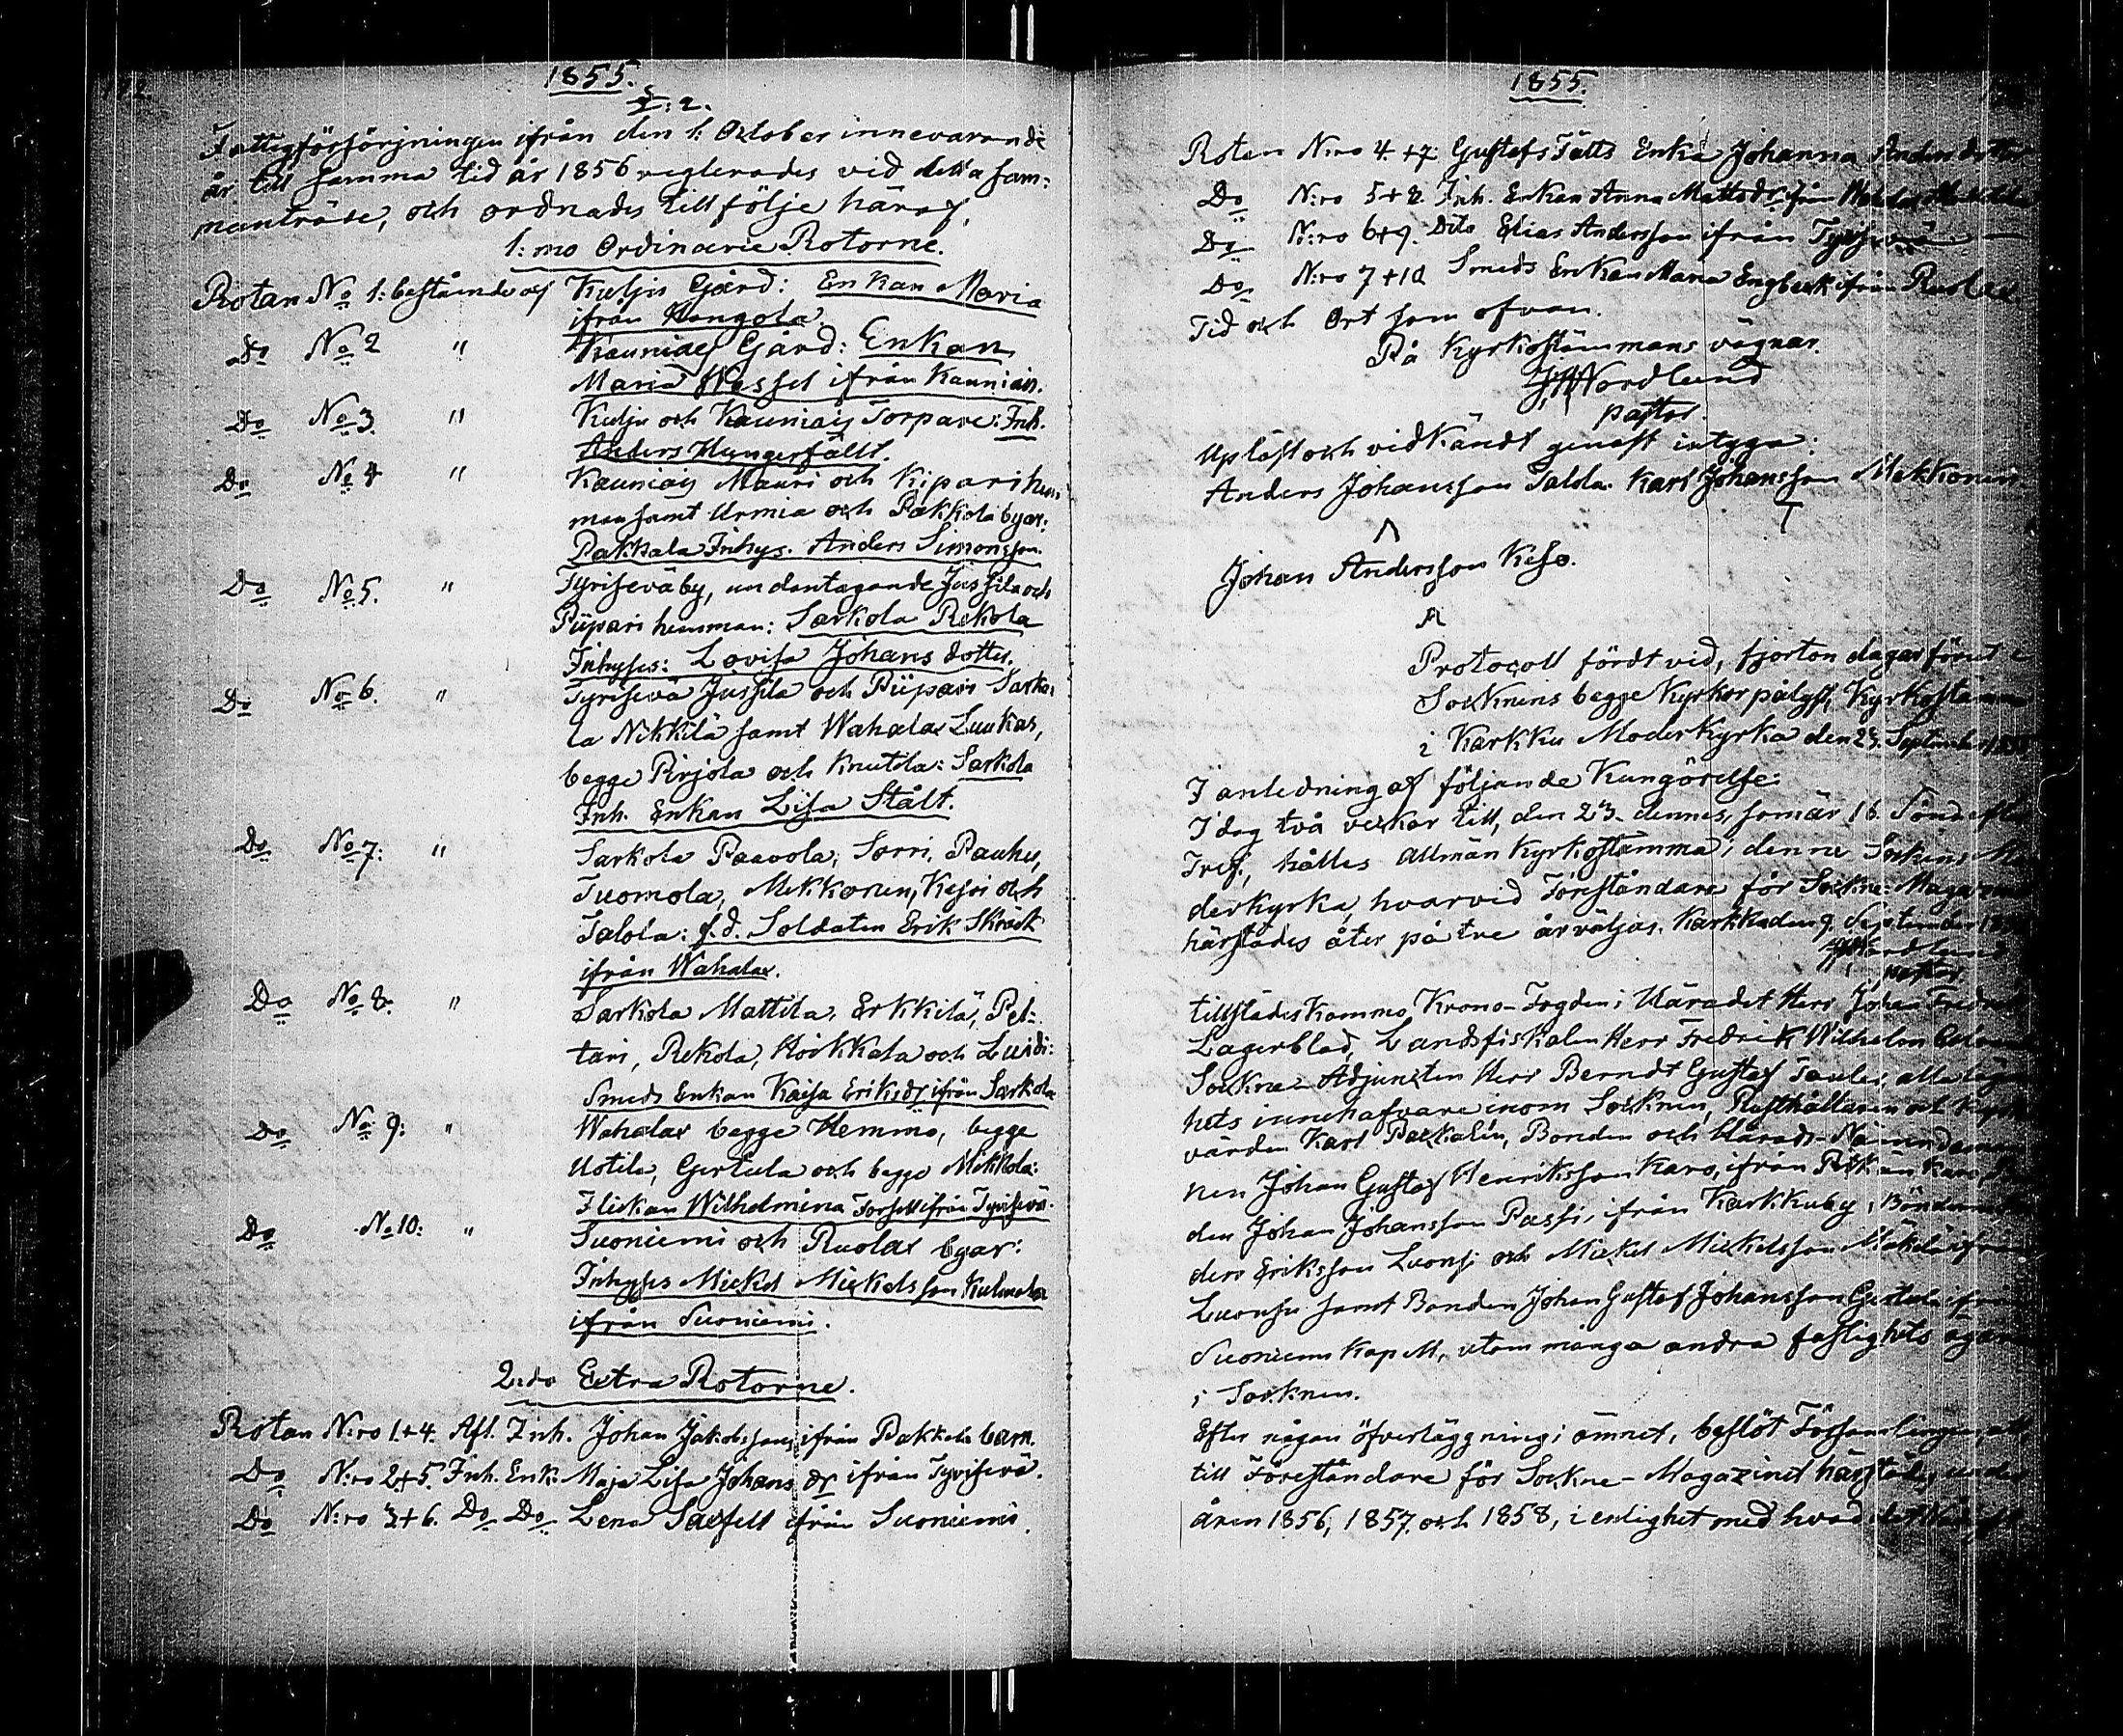 1855.
§: 2.
Fattigförsörjningen ifrån den 1: October innevarande
år till samma tid år 1856 reglerades vid detta sam:
manträde, och ordnades till följe häraf.
1:mo Ordinarie Rotorne.
Rotan No 1: bestående af Kulju Gård: Enkan Maria
ifrån Hangola.
Do No 2 " Kauniais Gård: Enkan
Maria Wassel ifrån Kauniais.
Do No 3. " Kulju och Kauniais Torpare: Inh.
Anders Hungerfällt.
Do No 4 " Kauniais Mauri och Kipari hus:
man samt Urmia och Pakkala byar:
Pakkala Inhys. Anders Simonsson.
Do No 5. " Tyrisevä by, undantagande Jussila och
Piipari husman: Sarkola Rekola
Inhyses: Lovisa Johans dotter.
Do No 6. " Tyrisevä Jussila och Piipari Sarko:
la Nikkilä samt Wahalax Luukas,
begge Pirjola och Knutila: Sarkola
Inh. Enkan Lisa Stålt.
Do No 7: " Sarkola Paavola, Sorri, Pauhu,
Tuomola, Mekkonen, Keso och
Talola: f.d. Soldaten Erik Skräck
ifrån Wahalax.
Do No 8: " Sarkola Mattila, Erkkilä, Pel:
tari, Rekola, Hoikkala och Luidi:
Smeds Enkan Kaisa Eriksdr ifrån Sarkola
Do No 9: " Wahalax begge Hemmo, begge
Uotila, Gertula och begge Mikkola:
Flickan Wilhelmina Forsell ifrån Tyrisevä.
Do No 10: " Suoniemi och Ruolax byar:
Inhyses Mickel Mickelsson Kulmala
ifrån Suoniemi.
2:do Extra Rotorne.
Rotan N:ro 1+4. Afl. Inh. Johan Jakobssons ifrån Pakkala barn.
Do N:ro 2+5. Inh. Enk: Maja Lisa Johans dr ifrån Tyrisevä.
Do N:ro 3+6. Do Do Lena Saxfelt ifrån Suoniemi.
1855.
Rotan N:ro 4+7. Gustafs Tätts Enka Johanna Andersdotter
Do N:ro 5+8. Inh. Enkan Anna Mattsdr ifrån
Do N:ro 6+9. Dito Elias Andersson ifrån Tyrisevä
Do N:ro 7+10 Smeds Enkan Maria Engberk ifrån Ruolax.
Tid och Ort som ofvan.
På Kyrkostämmans vägnar.
Nordlund
pastor.
Upläst och vidkändt genast intyga:
Anders Johansson Talola. Karl Johansson Mekkonen
Johan Andersson Keso.
Protocoll fördt vid, fjorton dagar förut i
Socknens begge Kyrkor pålyst, Kyrkostämma
i Karkku Moderkyrka den 23. September 1855
I anledning af följande Kungörelse:
I dag två veckor till, den 23. dennes, som är 16. Sönd. efter
Tref., hålles Allmän Kyrkostämma, denne Sockens Mo
derkyrka, hvarvid Föreståndare för Sockne-Magazinet
härstädes åter på tre år väljas. Karkku den 9. September 1855
Nordlund
pastor.
tillstädes kommo, Krono-Fogden i Häradet Herr Johan Fredrik
Lagerblad, Landsfiskalen Herr Fredrik Wilhelm
Sockne-Adjuncten Herr Berndt Gustaf Tauler, alla lägen
hets innehafvare inom Socknen, Rusthållaren och Kyrko
värden Karl Packalén, Bonden och Härads-Nämndeman
nen Johan Gustaf Henriksson Karo, ifrån
den Johan Johansson Passi, ifrån Karkkuby, Bönderne
ders Eriksson Luonsi och Mickel Mickelsson Mäkelä ifrån
Luonsu samt Bonden Johan Gustaf Johansson Gertula ifrån
Suoniemi Kapell, utom många andra fastighets ägare
i Socknen.
Efter någon öfverläggning i ämnet, beslöt Församlingen att
till Föreståndare för Sockne-Magazinet härstädes under
åren 1856, 1857. och 1858, i enlighet med hvad